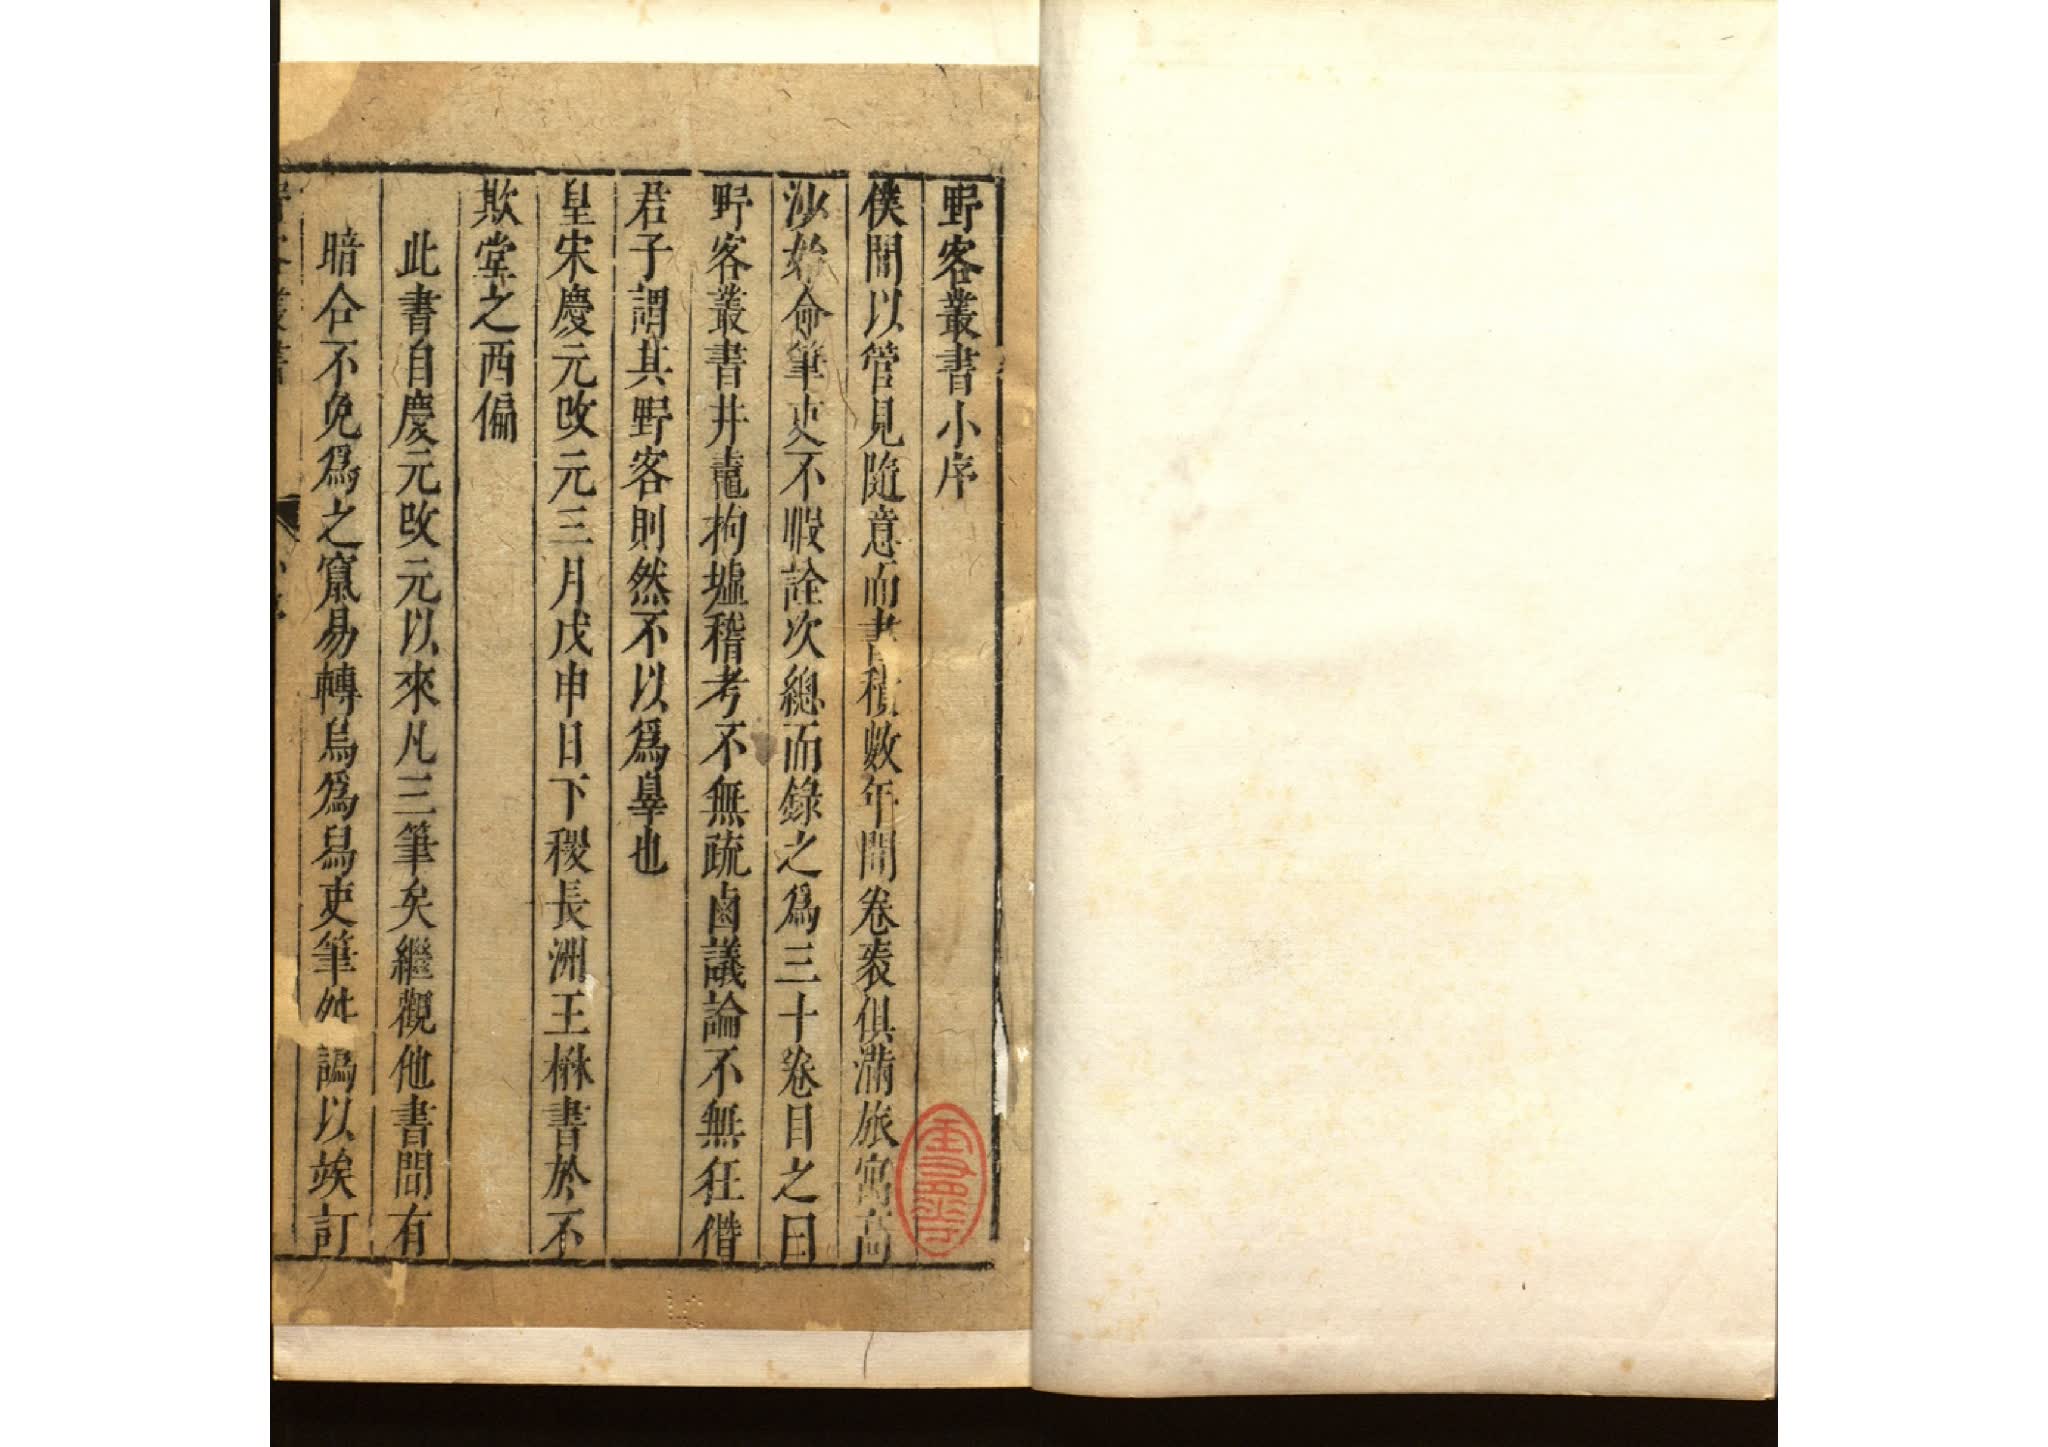 野客叢書小序
僕間以管見隨意而書積數年間卷袠俱滿旅寓高
沙始命筆吏不暇詮次總而錄之爲三十卷目之曰
野客叢書井鼃拘墟稽考不無疏鹵議論不無狂僭
君子謂其野客則然不以爲辠也
皇宋慶元改元三月戊申日下稷長洲王楙書於不
欺堂之西偏
此書自慶元改元以來凡三筆矣繼觀他書間有
暗合不免爲之竄易轉烏爲舄吏筆舛譌以竢訂